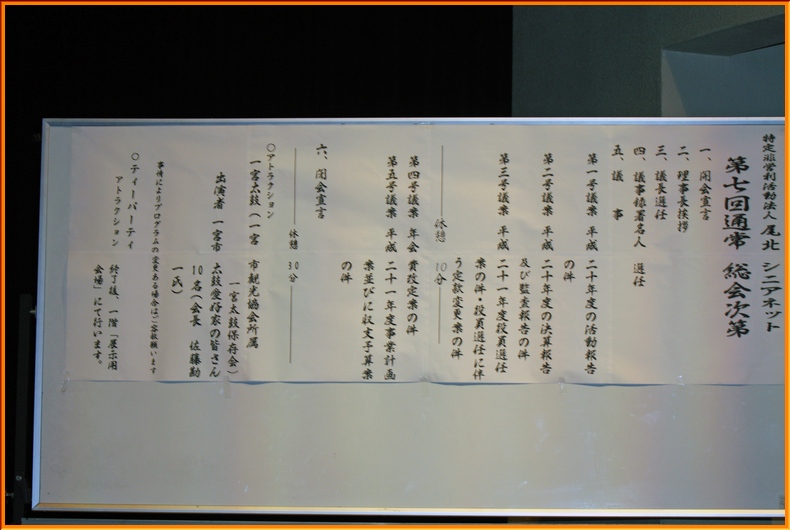 特定非営利活動法人 尾北 シニアネット
第七回通常 総会次第
一、開会宣言
二、理事長挨拶
三、議長選任
四、議事録署名人 選任
五、議 事
第一号議案 平成二十年度の活動報告
の件
第二号議案 平成二十年度の決算報告
及び監査報告の件
第三号議案 平成二十一年度役員選任
案の件・役員選任に伴
う定款変更案の件
休憩 10分
第四号議案 年会費改定案の件
第五号議案 平成二十一年度事業計画
案並びに収支予算案
の件
六、閉会宣言
休憩 30分
○アトラクション
一宮太鼓(一宮市観光協会所属
一宮太鼓保存会)
出演者 一宮市太鼓愛好家の皆さん
10名(会長 佐藤勘
一氏)
事情によりプログラムの変更ある場合はご容赦願います
○ティーパーティ
アトラクション終了後、一階「展示用
会場」にて行います。